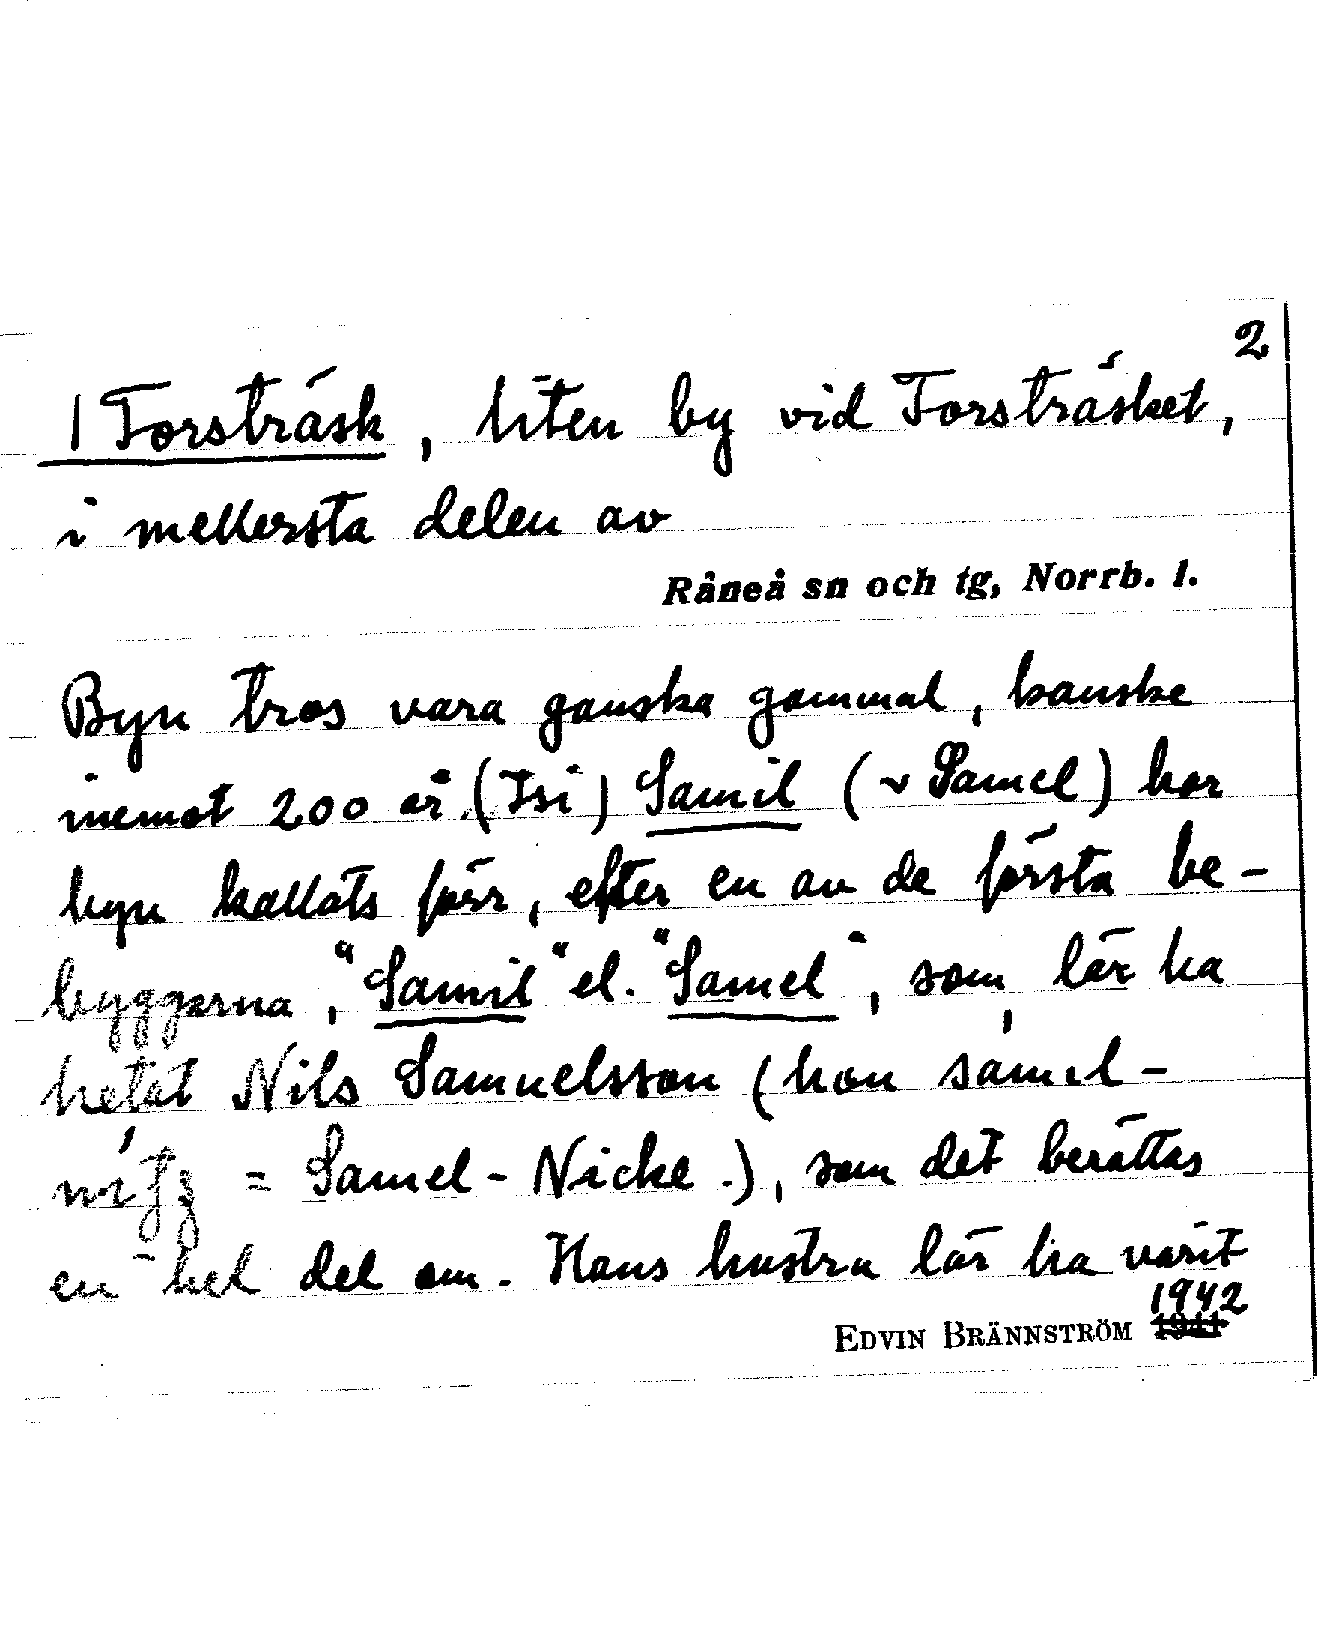 2
1 Forsträsk, liten by vid Forsträsket,
i mellersta delen av
Råneå sn och tg, Norrb. l.
Byn tros vara ganska gammal, kanske
inemot 200 år. (Isi) Samil (v Samel) har
byn kallats förr, efter en av de första be-
byggarna, "Samil" el. "Samel", som lär ha
hetat Nils Samuelsson (han samil-
= Samel-Nicke.), som det berättas
en hel del om. Hans hustru lär ha varit
1942
EDVIN BRÄNNSTRÖM 1941